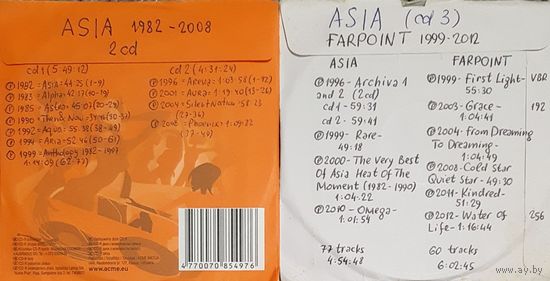 ASIA 1982-2008
2 cd
cd1 (5:49:12)
1982 = Asia-44:25 (1-9)
1983 = Alpha-42:17 (10-19)
1985 = Astra-45:07 (20-29)
1990 = Then & Now-
1992 = Aqua-55:38 (38-49)
1994 = Aria-52:46 (50-61)
1999 = Anthology 1982-1997
1:14:09 (62-77)
cd2 (4:31:24)
1996 = Arena-1:03:58 (1-12)
2001 = Aura-1:19:40 (13-26)
2004 = Silent Nation-58:23
(27-36)
Phoenix-1:09:22
(37-49)
www.acme.eu
4 770070 854976
ASIA (cd 3)
FARPOINT 1999-2012
ASIA
1996-Archiva 1
and 2 (2cd)
cd1-59:31
cd2-59:41
1999-Rare-
49:18
2000-The Very Best
Of Asia Heat Of The
Moment (1982-1990)
1:04:22
2010-Omega-
1:01:54
77 tracks
4:54:48
FARPOINT
1999-First Light-
55:30
VBR
2003-Grace-
1:04:41
192
2004-From Dreaming
To Dreaming-
1:04:49
2008-Cold Star
Quiet Star-49:30
2011-Kindred-
51:29
2012-Water Of
Life-1:16:44
256
60 tracks
6:02:45
www.ay.by